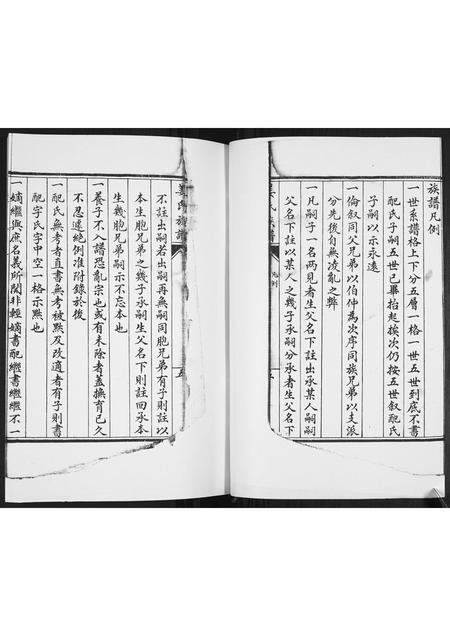 族譜凡例
一世系譜格上下分五層一格一世五世到底不書
配氏子嗣五世已畢抬起挨次仍按五世叙配氏
子嗣以示永遠
一倫叙同父兄弟以伯仲為次序同族兄弟以支派
分先後自無凌亂之弊
一凡嗣子一名兩見者生父名下註出承某人嗣嗣
父名下註以某人之幾子承嗣分承者生父名下
凡例
五
氏族譜
五
不註出嗣若出嗣再無嗣同胞兄弟有子則註以
本生胞兄弟之幾子承嗣生父名下則註回承本
生幾胞兄弟嗣示不忘本也
一養子不入譜恐亂宗也或有未除者蓋撫育已久
不忍遽絶例准附錄於後
一配氏無考者直書無考被黜及改適者有子則書
配字氏字中空一格示黜也
一嫡繼與庶名義所關非輕嫡書配繼書繼繼不一